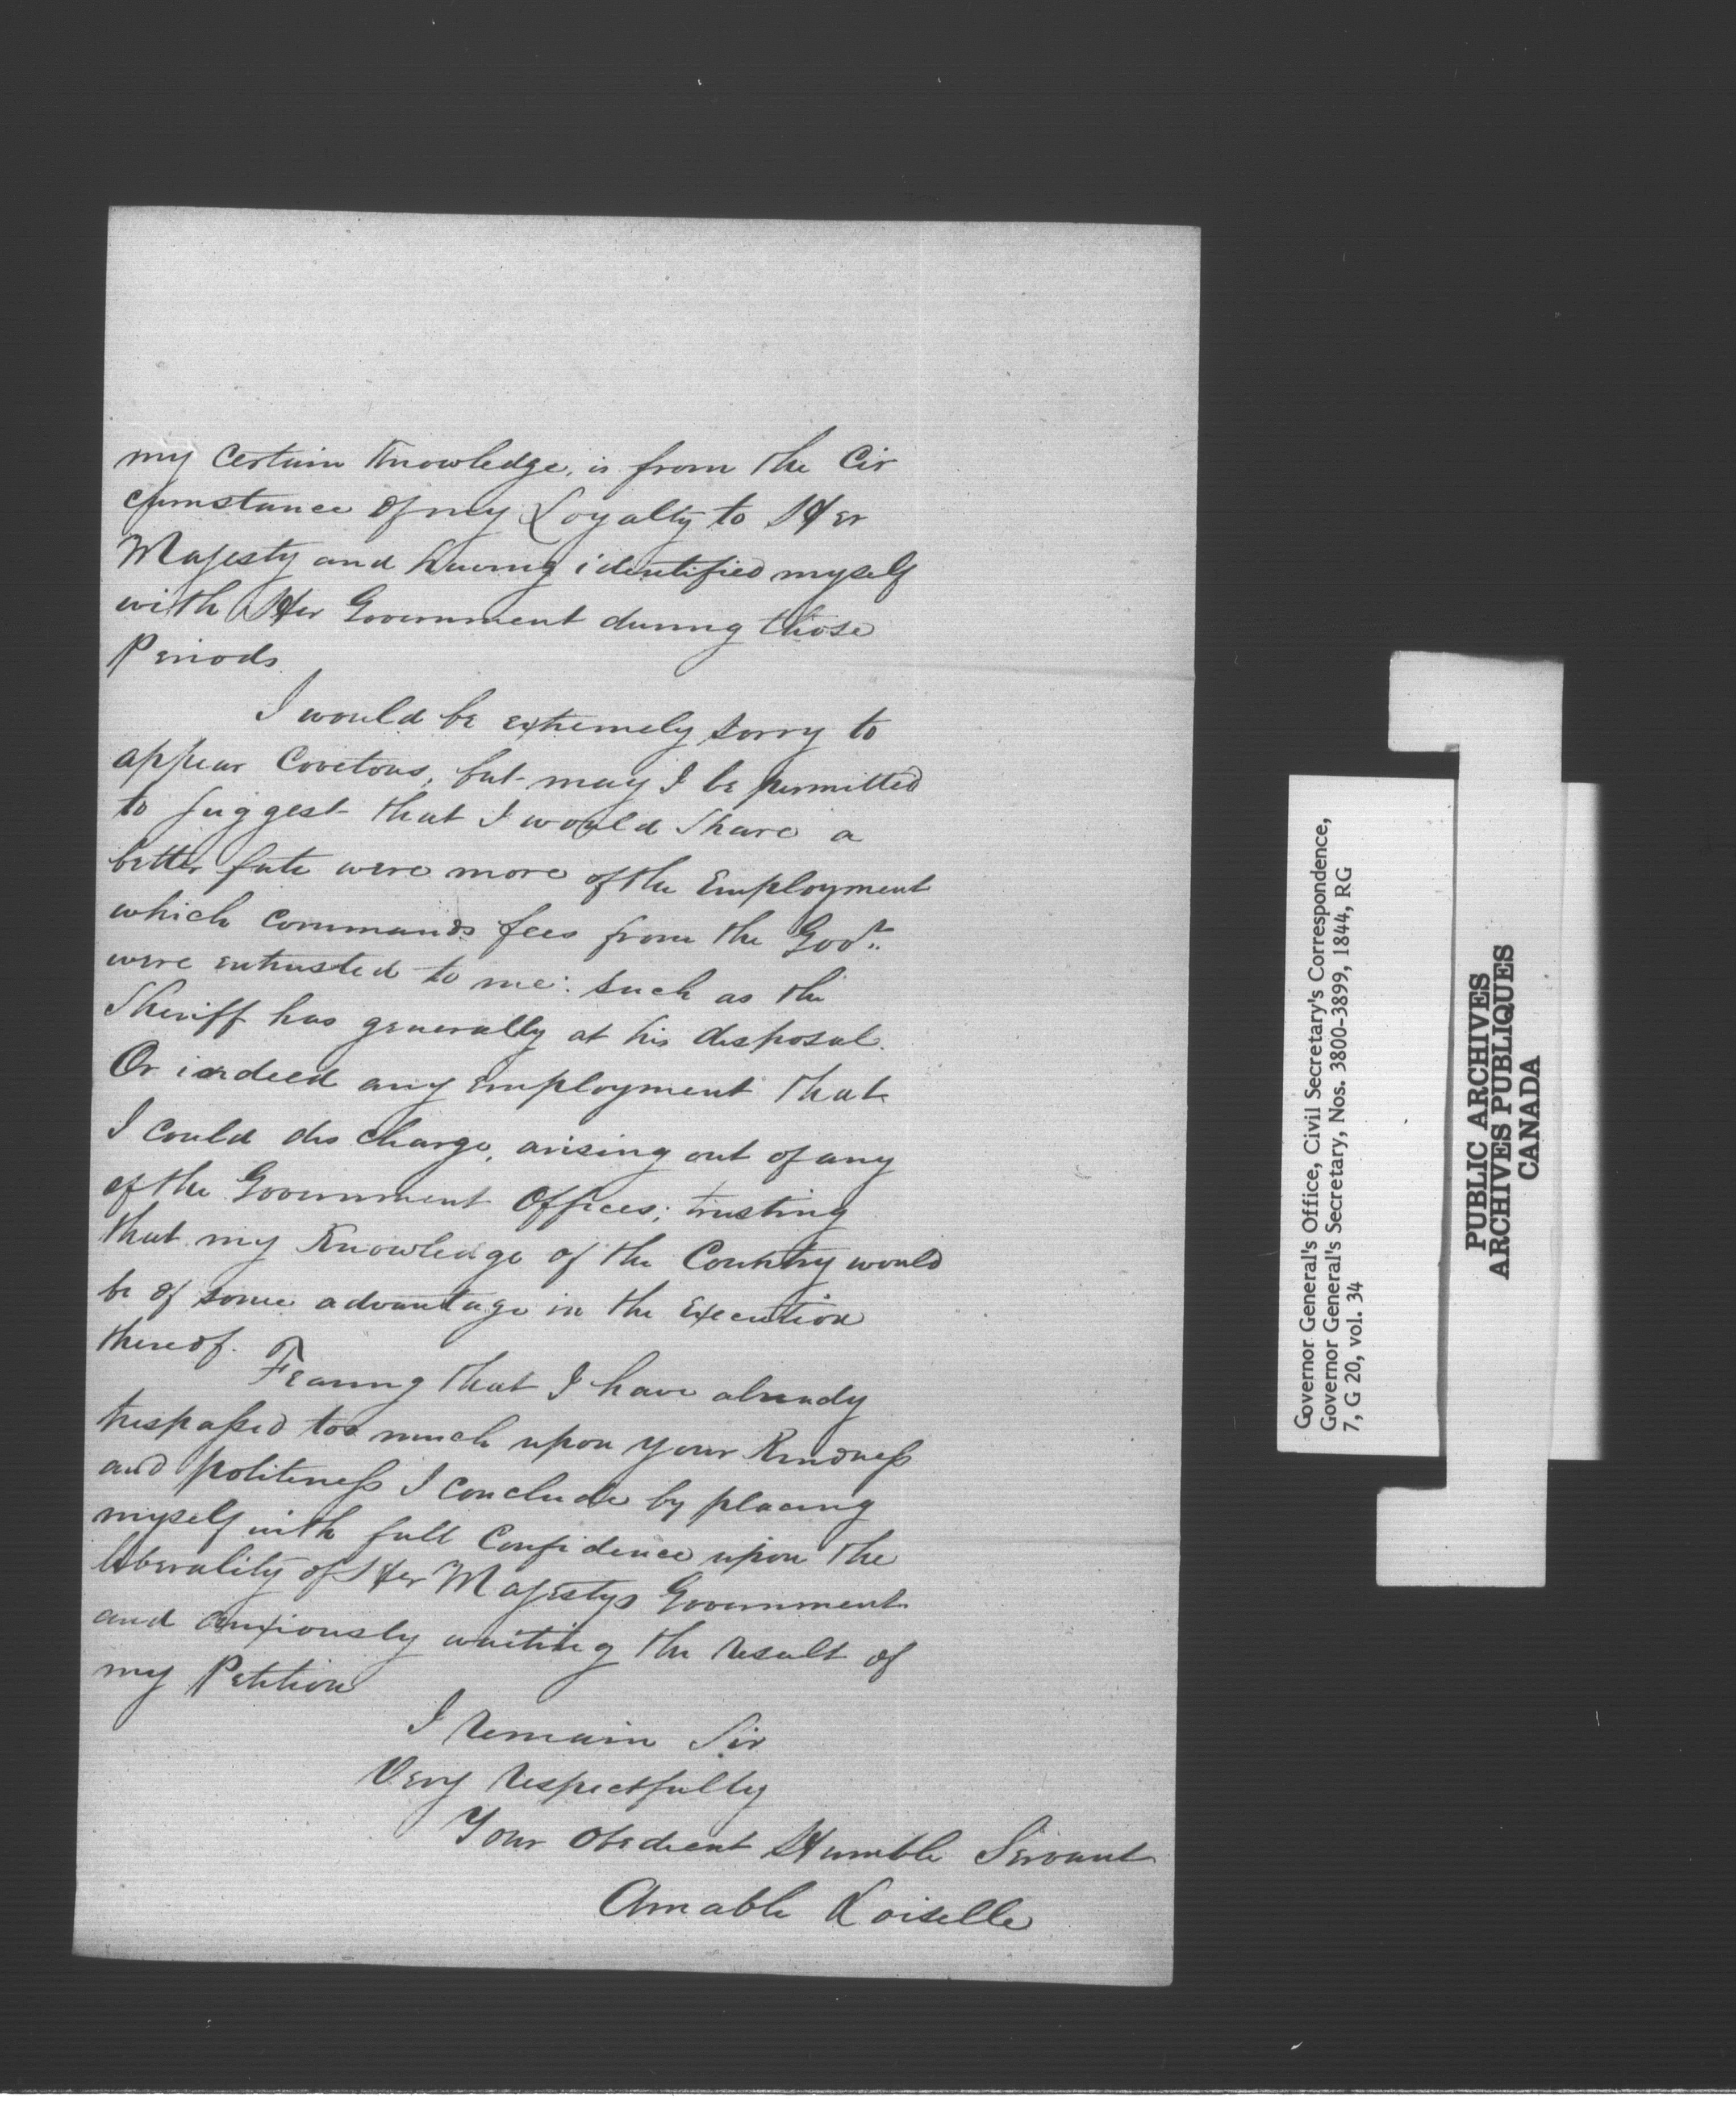 my Certain Knowledge, is from the Cir
cumstance of my Loyalty to Her
Majesty and having identified myself
with Her Government during those
Periods
I would be extremely sorry to
appear Covetous, but may I be permitted
to suggest that I would Share a
better fate were more of the Employment
which Commands fees from the Govt.
were entrusted to me: such as the
Sheriff has generally at his disposal.
Or indeed any Employment that
I Could discharge, arising out of any
of the Government Offices; trusting
that my Knowledge of the Country would
be of some advantage in the Execution
thereof.
Fearing that I have already
trespaſsed too much upon your Kindneſs
and politeneſs I Conclude by placing
myself with full Confidence upon the
liberality of Her Majestys Government
and anxiously waiting the result of
my Petition
I remain Sir
Very respectfully
Your Obedient Humble Servant
Amable Loiselle
Governor General's Office, Civil Secretary's Correspondence,
Governor General's Secretary, Nos. 3800-3899, 1844, RG
7, G 20, vol. 34
PUBLIC ARCHIVES
ARCHIVES PUBLIQUES
CANADA